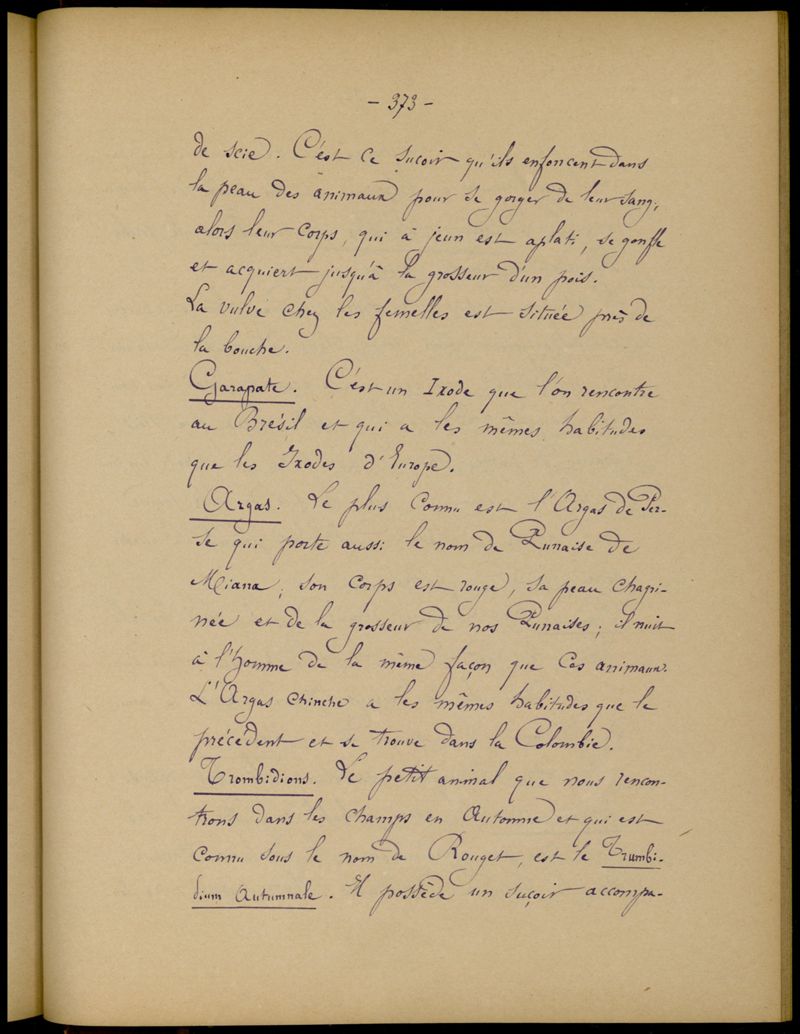 - 373 -
de scie. C'est ce suçoir qu'ils enfoncent dans
la peau des animaux pour se gorger de leur sang,
alors leur corps, qui à jeun est aplati, se gonfle
et acquiert jusqu'à la grosseur d'un pois.
La vulve chez les femelles est située près de
la bouche.
Garapate. C'est un Ixode que l'on rencontre
au Brésil et qui a les mêmes habitudes
que les Ixodes d'Europe.
Argas. Le plus connu est l'Argas de Per-
se qui porte aussi le nom de Punaise de
Miana, son corps est rouge, sa peau chagri-
née et de la grosseur de nos Punaises; il nuit
à l'homme de la même façon que ces animaux.
L'Argas chinche a les mêmes habitudes que le
précédent et se trouve dans la Colombie.
Trombidions. Le petit animal que nous rencon-
trons dans les champs en Automne et qui est
connu sous le nom de Rouget, est le Trumbi-
dium Autumnale. Il possède un suçoir accompa-